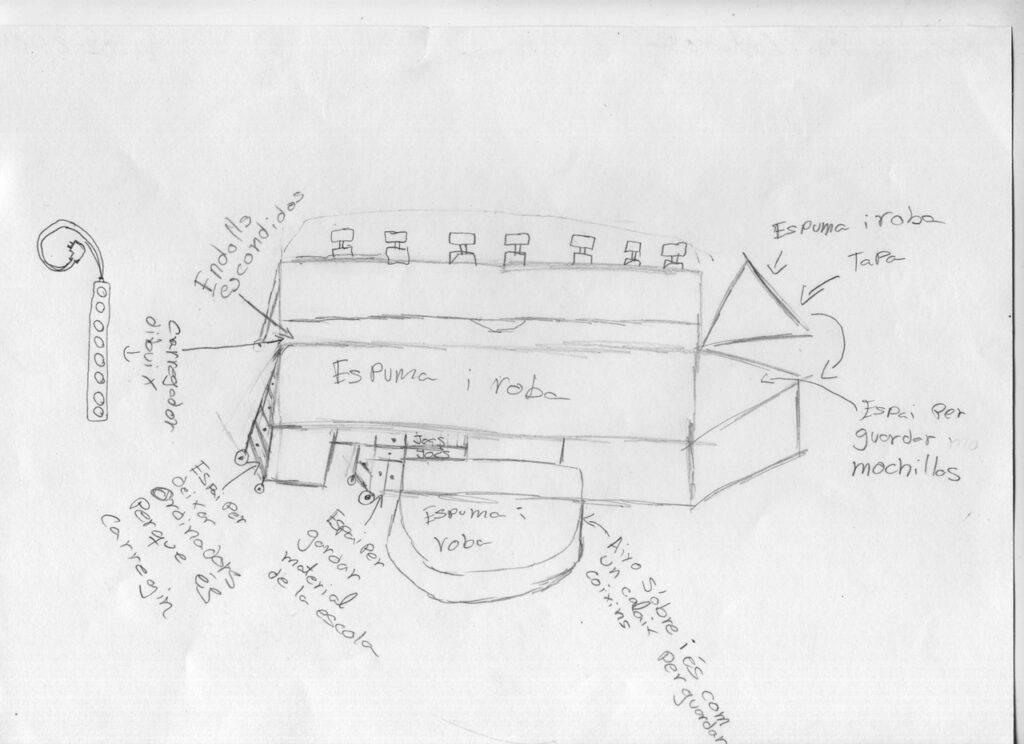 Endolls
escondidos
Carregador
dibuix
Espuma i roba
Tapa
Espuma i roba
Espai per
guardar
mochillas
Jocs
Jocs
Espuma i
roba
Espai per
deixar
Oroinadors
Perque és
Carregin
Espai per
gordar
material
de la escola
Aixo s'obre i és com
un calaix per guardar
coixins